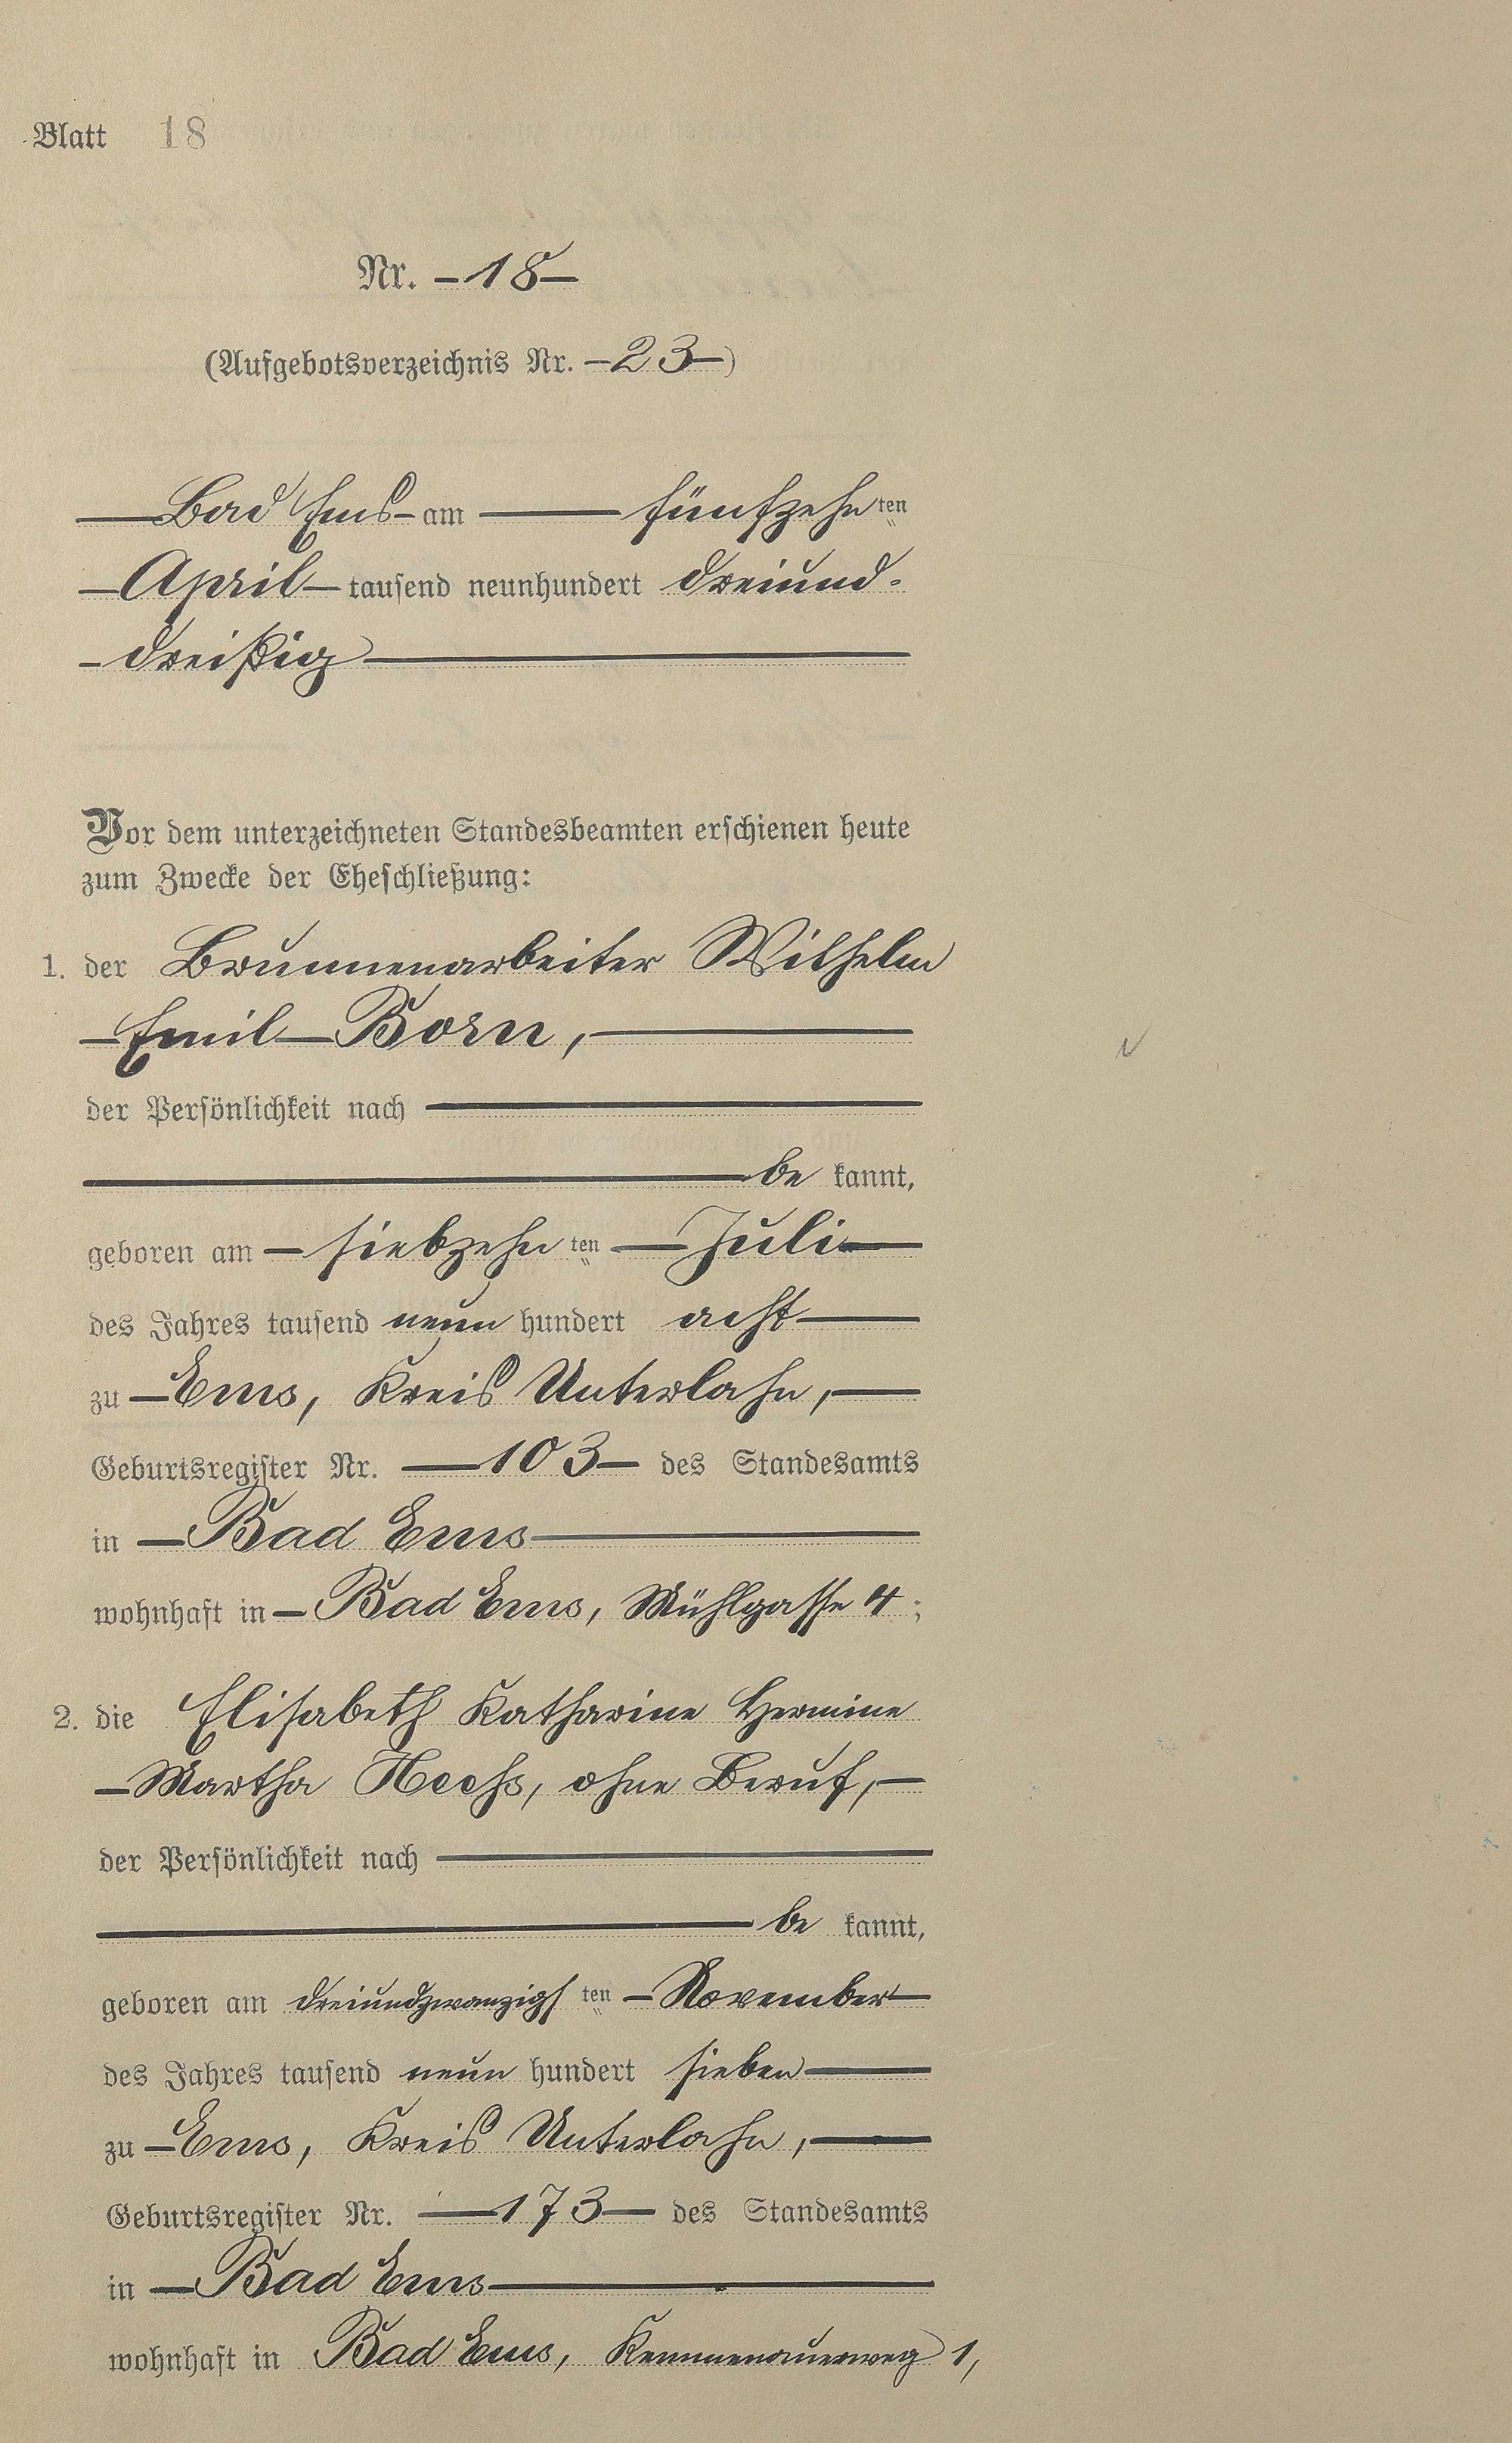 Blatt 18
Nr. -18-
(Aufgebotsverzeichnis Nr. -23-)
Bad Ems am fünfzehnten
April tausend neunhundert dreiund-
dreißig
Vor dem unterzeichneten Standesbeamten erschienen heute
zum Zwecke der Eheschließung:
1. der Brunnenarbeiter Wilhelm
Emil Born,
der Persönlichkeit nach
be kannt,
geboren am siebzehnten Juli
des Jahres tausend neun hundert acht
zu Ems, Kreis Unterlahn,
Geburtsregister Nr. 103 des Standesamts
in Bad Ems
wohnhaft in Bad Ems, Mühlgasse 4;
2. die Elisabeth Katharine Hermine
Martha ohne Beruf,
der Persönlichkeit nach
be kannt,
geboren am dreiundzwanzigsten November
des Jahres tausend neun hundert sieben
zu Ems, Kreis Unterlahn,
Geburtsregister Nr. 173 des Standesamts
in Bad Ems
wohnhaft in Bad Ems, Kemmenauerweg 1,